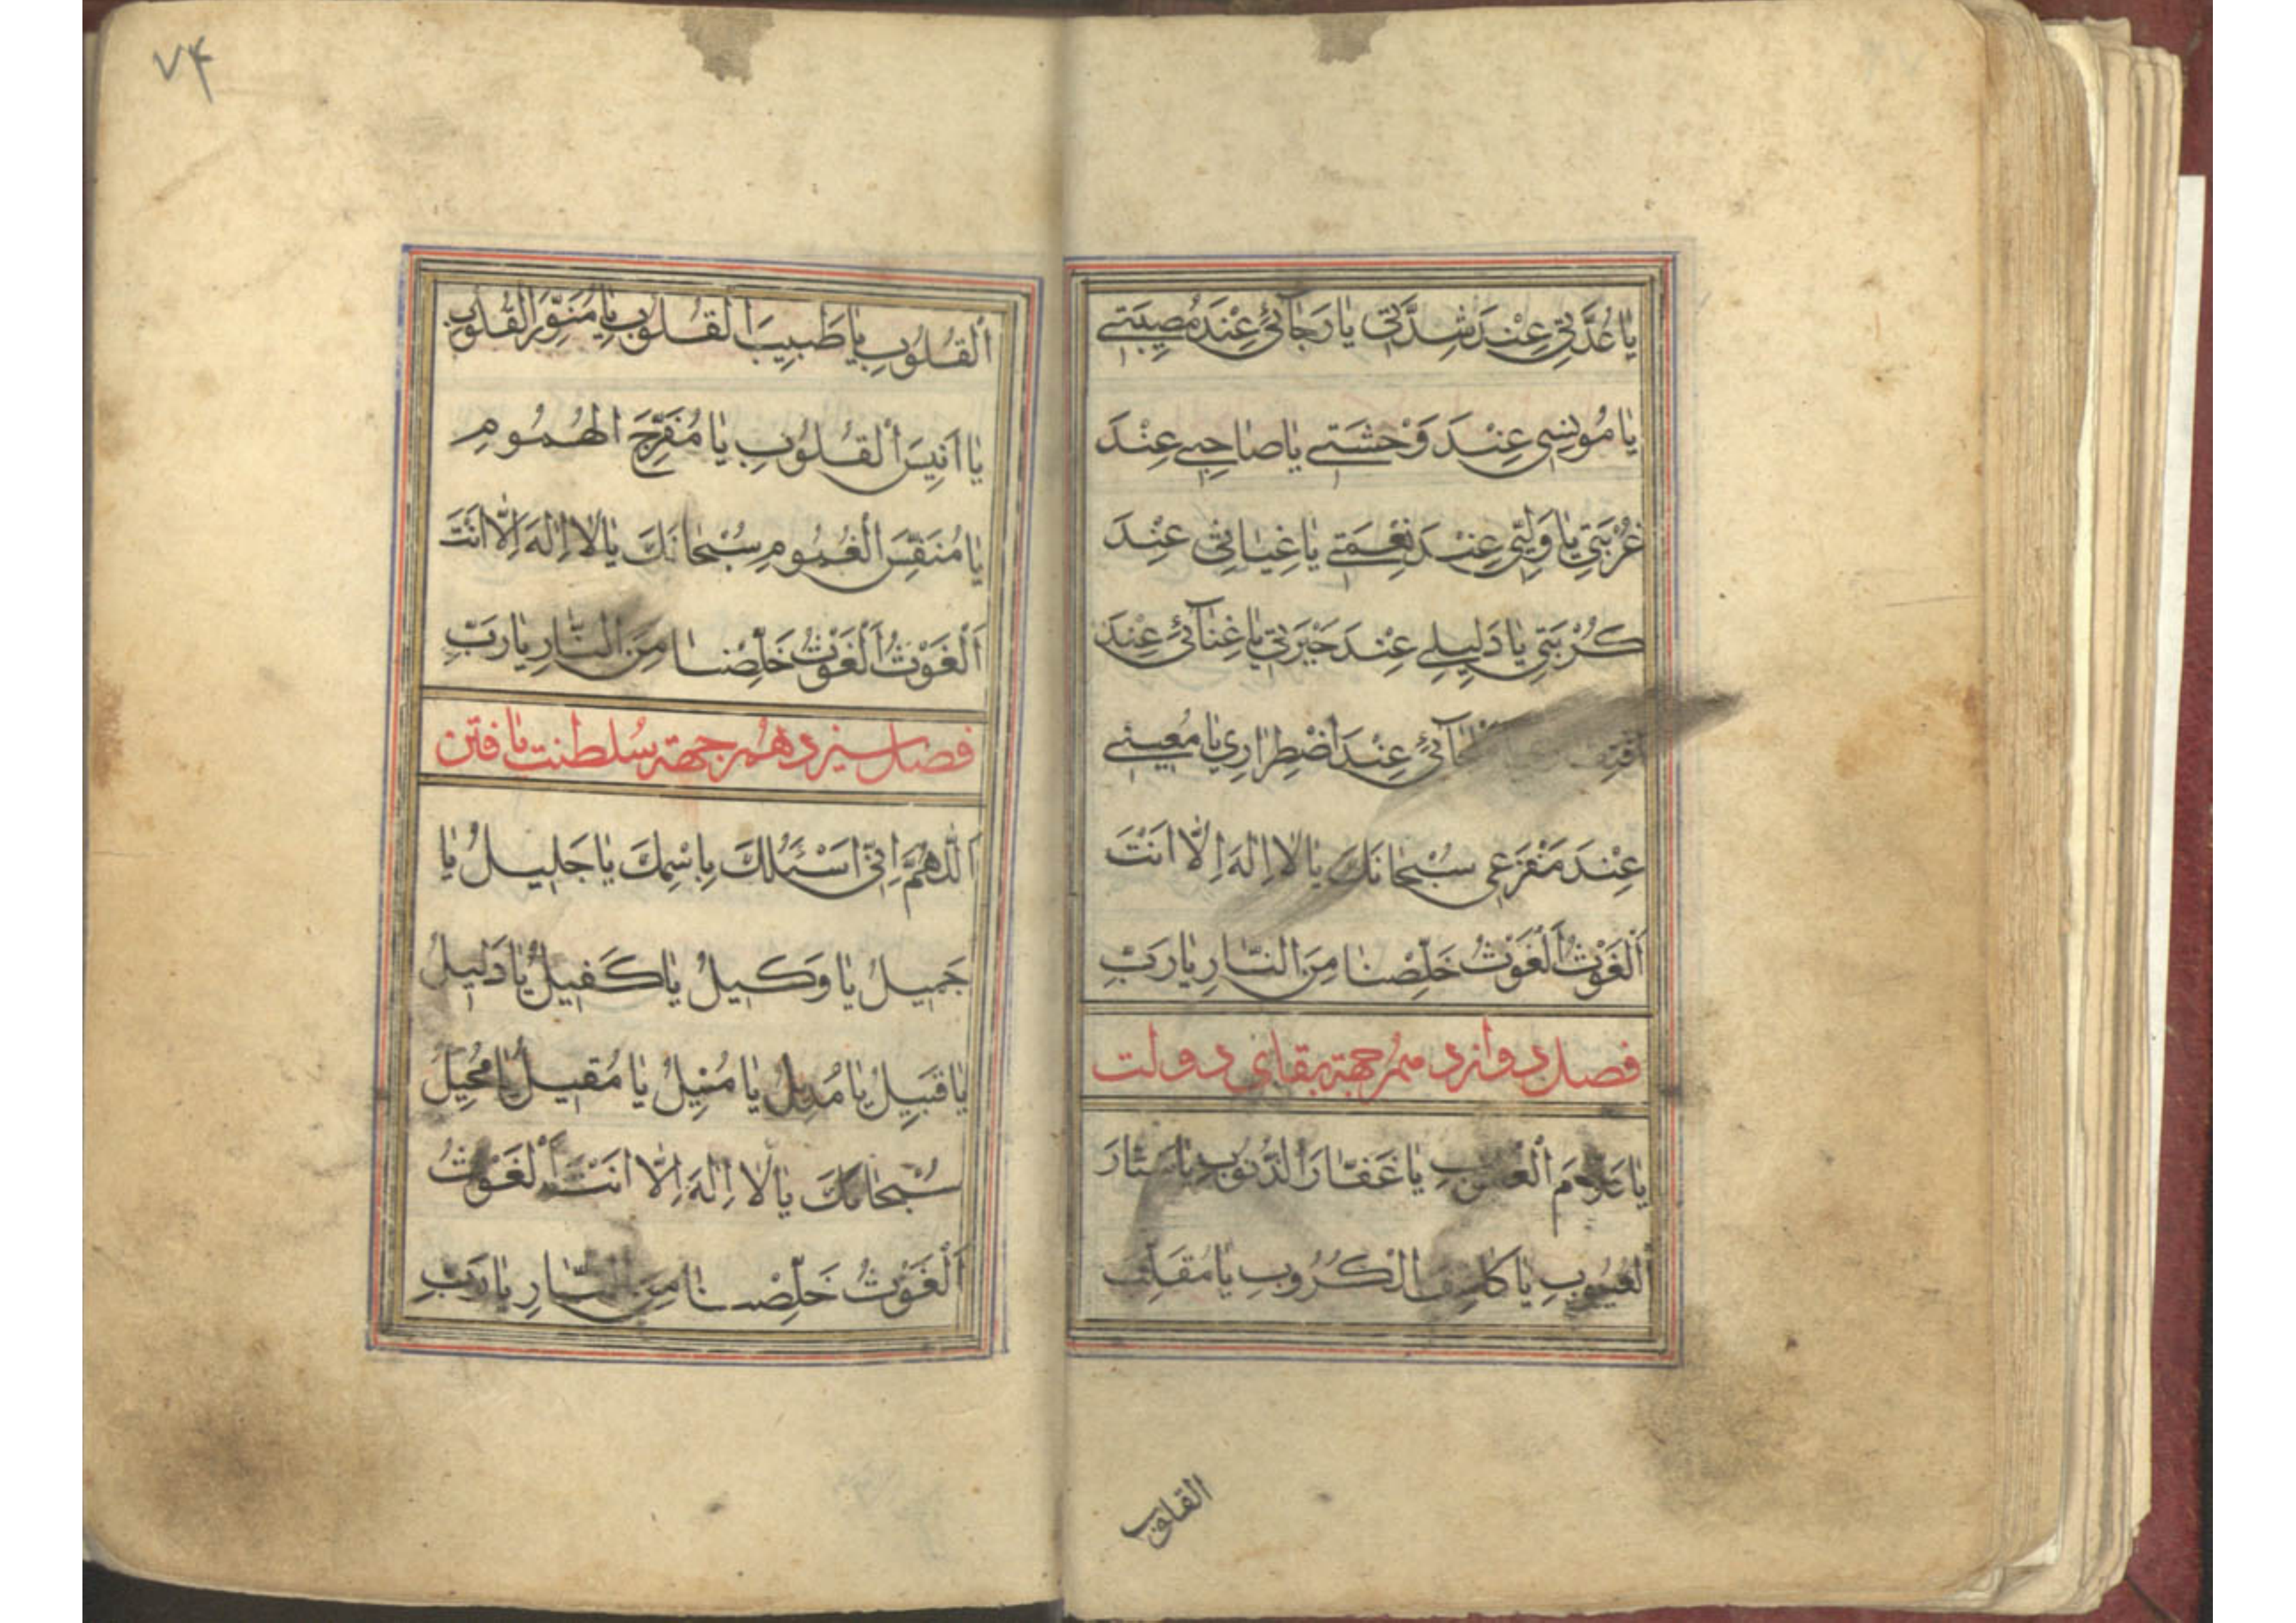 يا عُدَّتي عِنْدَ شِدَّتي يا رَجآئي عِنْدَ مُصيبَتي
يا مُونِسي عِنْدَ وَحْشَتي يا صاحِبي عِنْدَ
غُرْبَتي يا وَلِيّي عِنْدَ نِعْمَتي يا غِياثي عِنْدَ
كُرْبَتي يا دَليلي عِنْدَ حَيْرَتي يا غِنآئي عِنْدَ
عِنْدَ اضْطِراري يا مُعيني
عِنْدَ مَفْزَعي سُبْحانَكَ يا لا اِلٰهَ اِلّا اَنْتَ
اَلْغَوْثُ اَلْغَوْثُ خَلِّصْنا مِنَ النّارِ يا رَبِّ
فصل دوازدهم جهة بقای دولت
يا عَلّامَ الْغُيُوبِ يا غَفّارَ الذُّنُوبِ يا سَتّارَ
الْعُيُوبِ يا كاشِفَ الْكُرُوبِ يا مُقَلِّبَ
القلوب
۷۴
الْقُلُوبِ يا طَبيبَ الْقُلُوبِ يا مُنَوِّرَ الْقُلُوبِ
يا اَنيسَ الْقُلُوبِ يا مُفَرِّجَ الْهُمُومِ
يا مُنَفِّسَ الْغُمُومِ سُبْحانَكَ يا لا اِلٰهَ اِلّا اَنْتَ
اَلْغَوْثُ اَلْغَوْثُ خَلِّصْنا مِنَ النّارِ يا رَبِّ
فصل سیزدهم جهة سلطنت یافتن
اَللّهُمَّ اِنّي اَسْئَلُكَ بِاسْمِكَ يا جَليلُ يا
جَميلُ يا وَكيلُ يا كَفيلُ يا دَليلُ
يا قَبيلُ يا مُديلُ يا مُنيلُ يا مُقيلُ يا مُحيلُ
سُبْحانَكَ يا لا اِلٰهَ اِلّا اَنْتَ اَلْغَوْثُ
اَلْغَوْثُ خَلِّصْنا مِنَ النّارِ يا رَبِّ